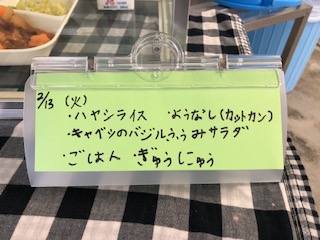 2/13 (火)
・ハヤシライス ・ようなし(カットカン)
・キャベツのバジルふうみサラダ
・ごはん ・ぎゅうにゅう